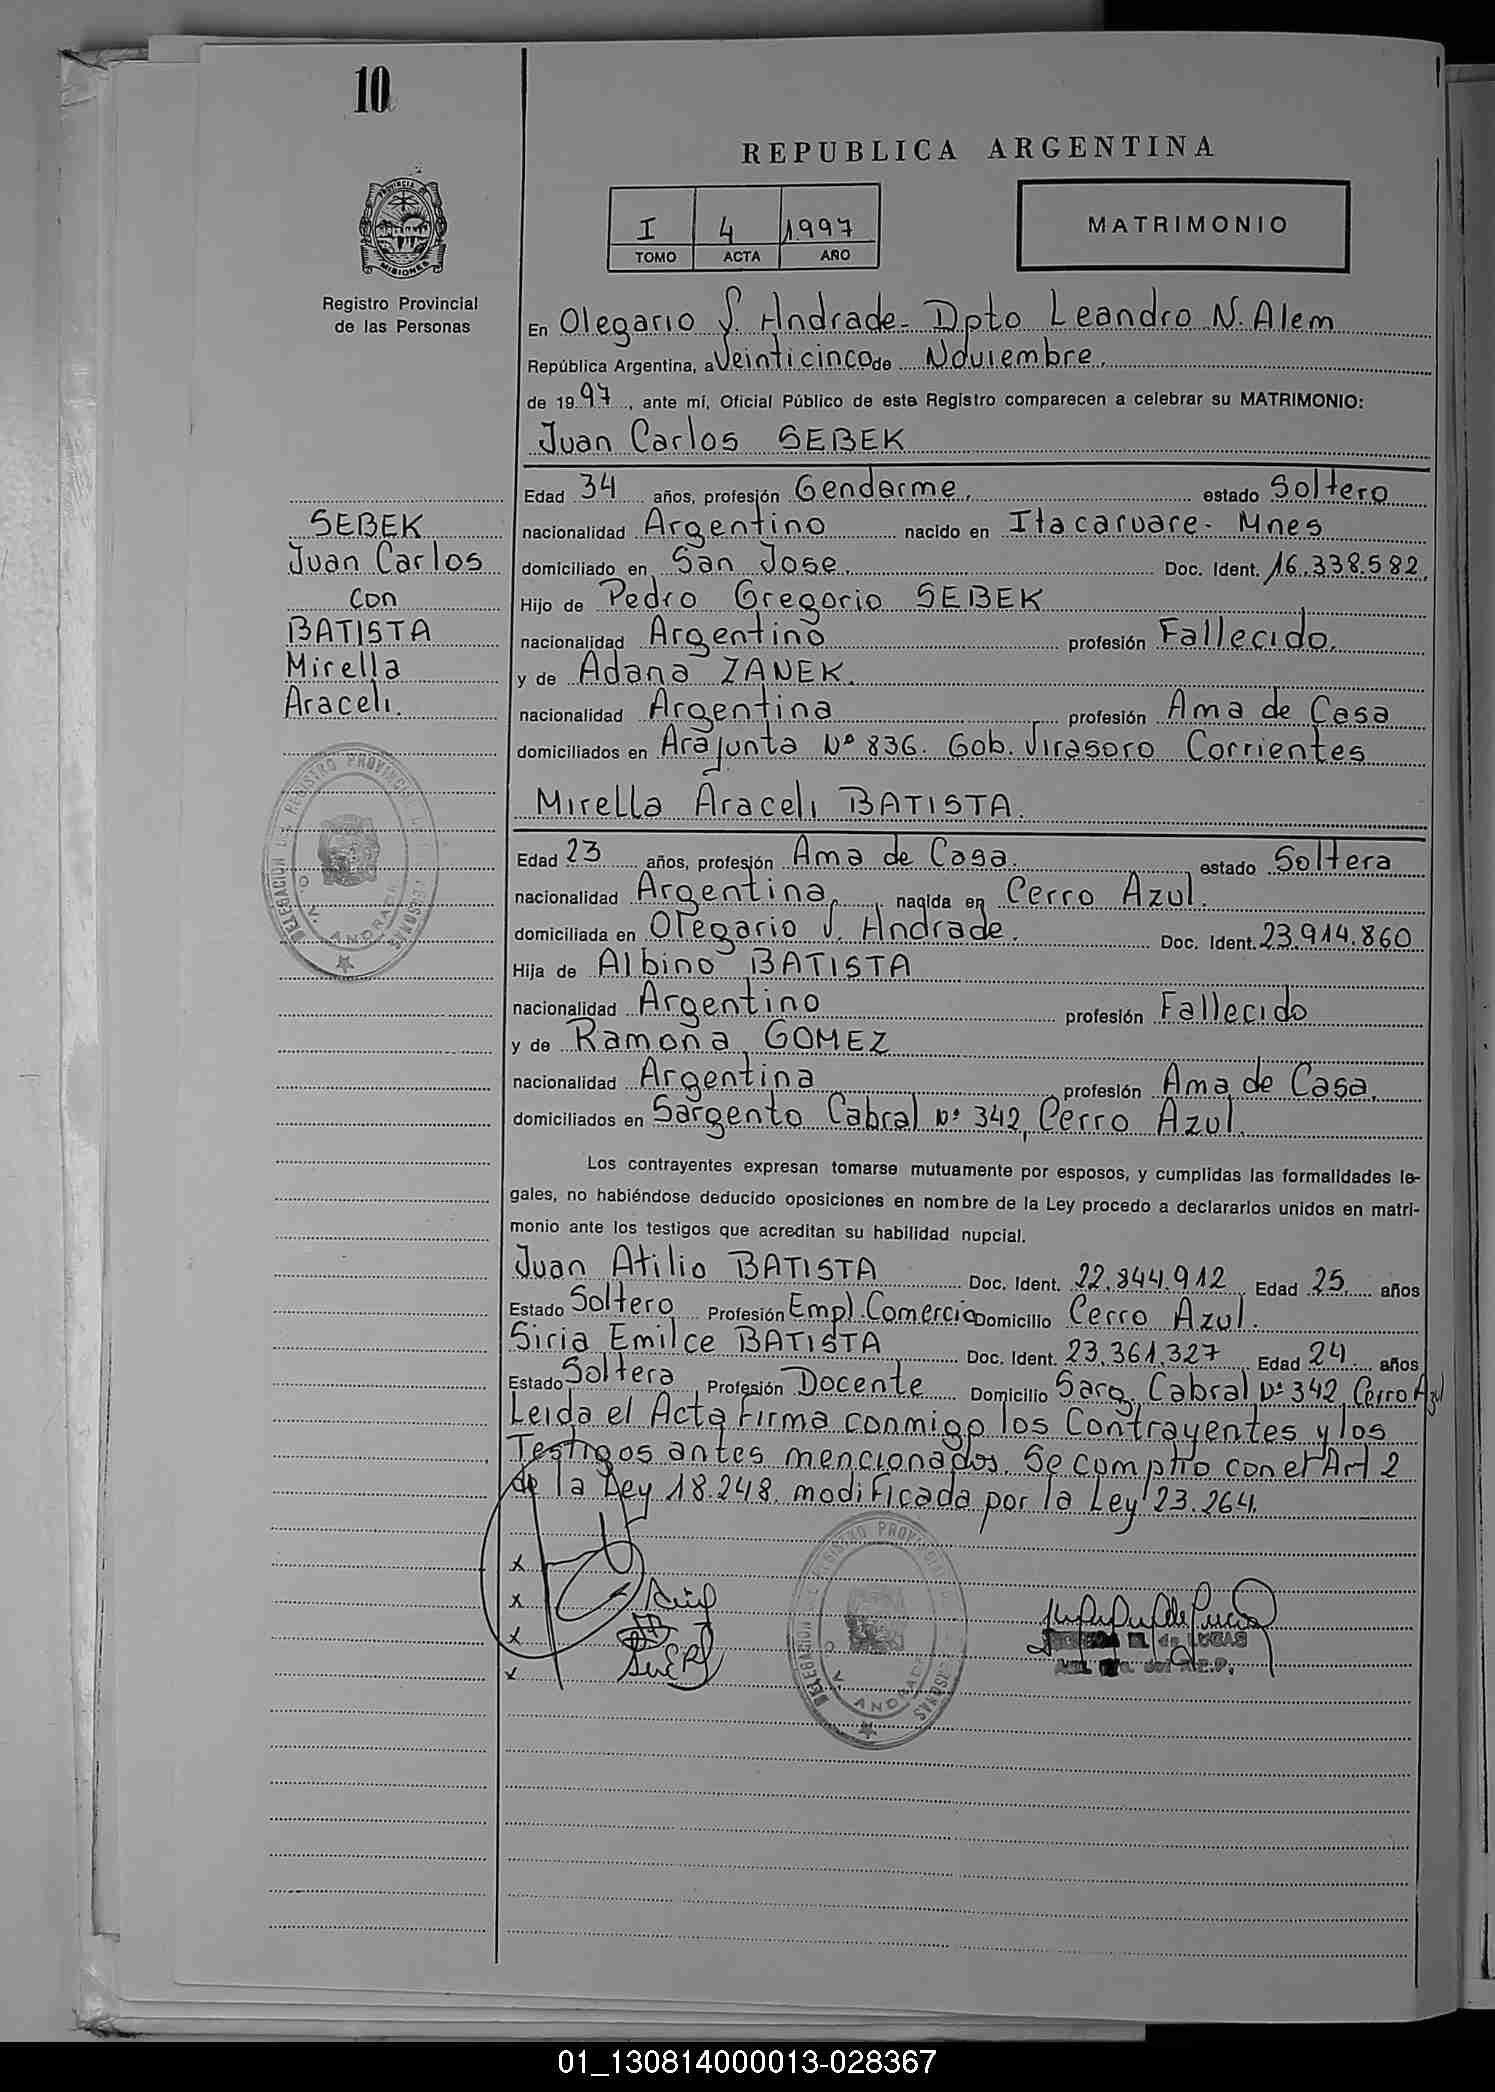 10
REPUBLICA ARGENTINA
I 4 1997
TOMO ACTA AÑO
MATRIMONIO
PROVINCIA DE MISIONES
Registro Provincial
de las Personas
En Olegario V. Andrade- Dpto Leandro N. Alem
República Argentina, a Veinticinco de Noviembre.
de 1997, ante mí, Oficial Público de este Registro comparecen a celebrar su MATRIMONIO:
Juan Carlos SEBEK
Edad 34 años, profesión Gendarme, estado Soltero
nacionalidad Argentino nacido en Itacaruare- Mnes
domiciliado en San Jose. Doc. Ident. 16.338.582,
Hijo de Pedro Gregorio SEBEK
nacionalidad Argentino profesión Fallecido.
y de Adana ZANEK.
nacionalidad Argentina profesión Ama de Casa
domiciliados en Arajunta Nº 836. Gob. Virasoro Corrientes
SEBEK
Juan Carlos
con
BATISTA
Mirella
Araceli.
Mirella Araceli BATISTA.
Edad 23 años, profesión Ama de Casa. estado Soltera
nacionalidad Argentina, nacida en Cerro Azul.
domiciliada en Olegario V. Andrade. Doc. Ident. 23.914.860
Hija de Albino BATISTA
nacionalidad Argentino profesión Fallecido
y de Ramona GOMEZ
nacionalidad Argentina profesión Ama de Casa,
domiciliados en Sargento Cabral Nº 342, Cerro Azul.
DELEGACION DEL REGISTRO PROVINCIAL DE LAS PERSONAS
O. V. ANDRADE
Los contrayentes expresan tomarse mutuamente por esposos, y cumplidas las formalidades le-
gales, no habiéndose deducido oposiciones en nombre de la Ley procedo a declararlos unidos en matri-
monio ante los testigos que acreditan su habilidad nupcial.
Juan Atilio BATISTA Doc. Ident. 22.844.912 Edad 25 años
Estado Soltero Profesión Empl. Comercio Domicilio Cerro Azul.
Siria Emilce BATISTA Doc. Ident. 23.361.327 Edad 24 años
Estado Soltera Profesión Docente Domicilio Sarg. Cabral Nº 342 Cerro Azul
Leida el Acta Firma conmigo los Contrayentes y los
Testigos antes mencionados. Se cumplio con el Art 2
de la Ley 18.248. modificada por la Ley 23.264.
x
x
x
x
DELEGACION DEL REGISTRO PROVINCIAL DE LAS PERSONAS
O. V. ANDRADE
de LUCAS
01_130814000013-028367